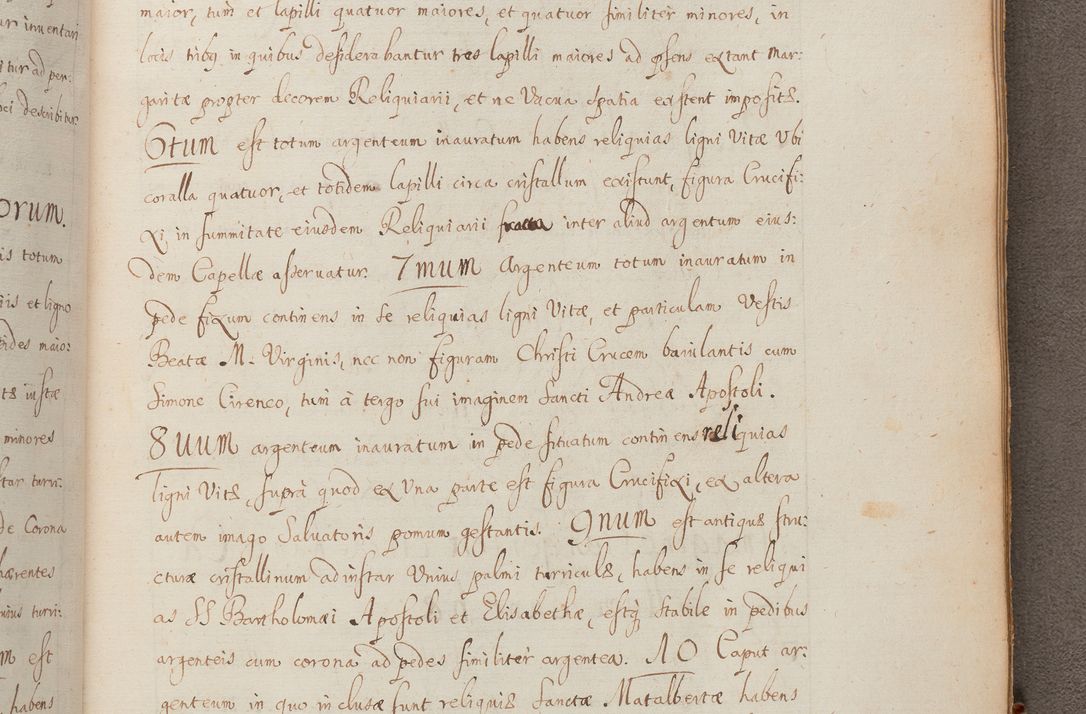 ur inventari
itur ad per:
hei describitur
orum.
is totum
iis et ligno
pides maio:
tę iustæ
minores
star turri:
de Corona
hærentes
nius turri:
m est
habens
maior, tum et lapilli quatuor maiores, et quatuor similiter minores, in
locis tribq in quibus desiderabantur tres lapilli maiores ad psens extant Mar:
garitæ propter decorem Reliquiarii, et ne Vacua spatia existent impositę.
6tum est totum argenteum inauratum habens reliquias ligni Vitæ Vbi
coralla quatuor, et totidem lapilli circa cristallum existunt, figura Crucifi:
xi in summitate eiusdem Reliquiarii fracta inter aliud argentum eius:
dem Capellæ asservatur. 7mum Argenteum totum inauratum in
pede fixum continens in se reliquias ligni Vitæ, et particulam Vestis
Beatæ M: Virginis, nec non figuram Christi Crucem baiulantis cum
Simone Cireneo, tum à tergo sui imaginem Sancti Andreæ Apostoli.
8uum argenteum inauratum in pede situatum continens reliquias
ligni Vitę, suprà quod ex Vna parte est figura Crucifixi, ex altera
autem imago Salvatoris pomum gestantis. 9num est antiquę stru:
cturæ cristallinum ad instar Unius palmi turriculę, habens in se reliqui
as SS Bartholomæi Apostoli et Elisabethæ, estq stabile in pedibus
argenteis cum corona ad pedes similiter argentea. 10 Caput ar:
genteum in quo inclusæ sunt reliquię Sanctæ Matalbertæ habens